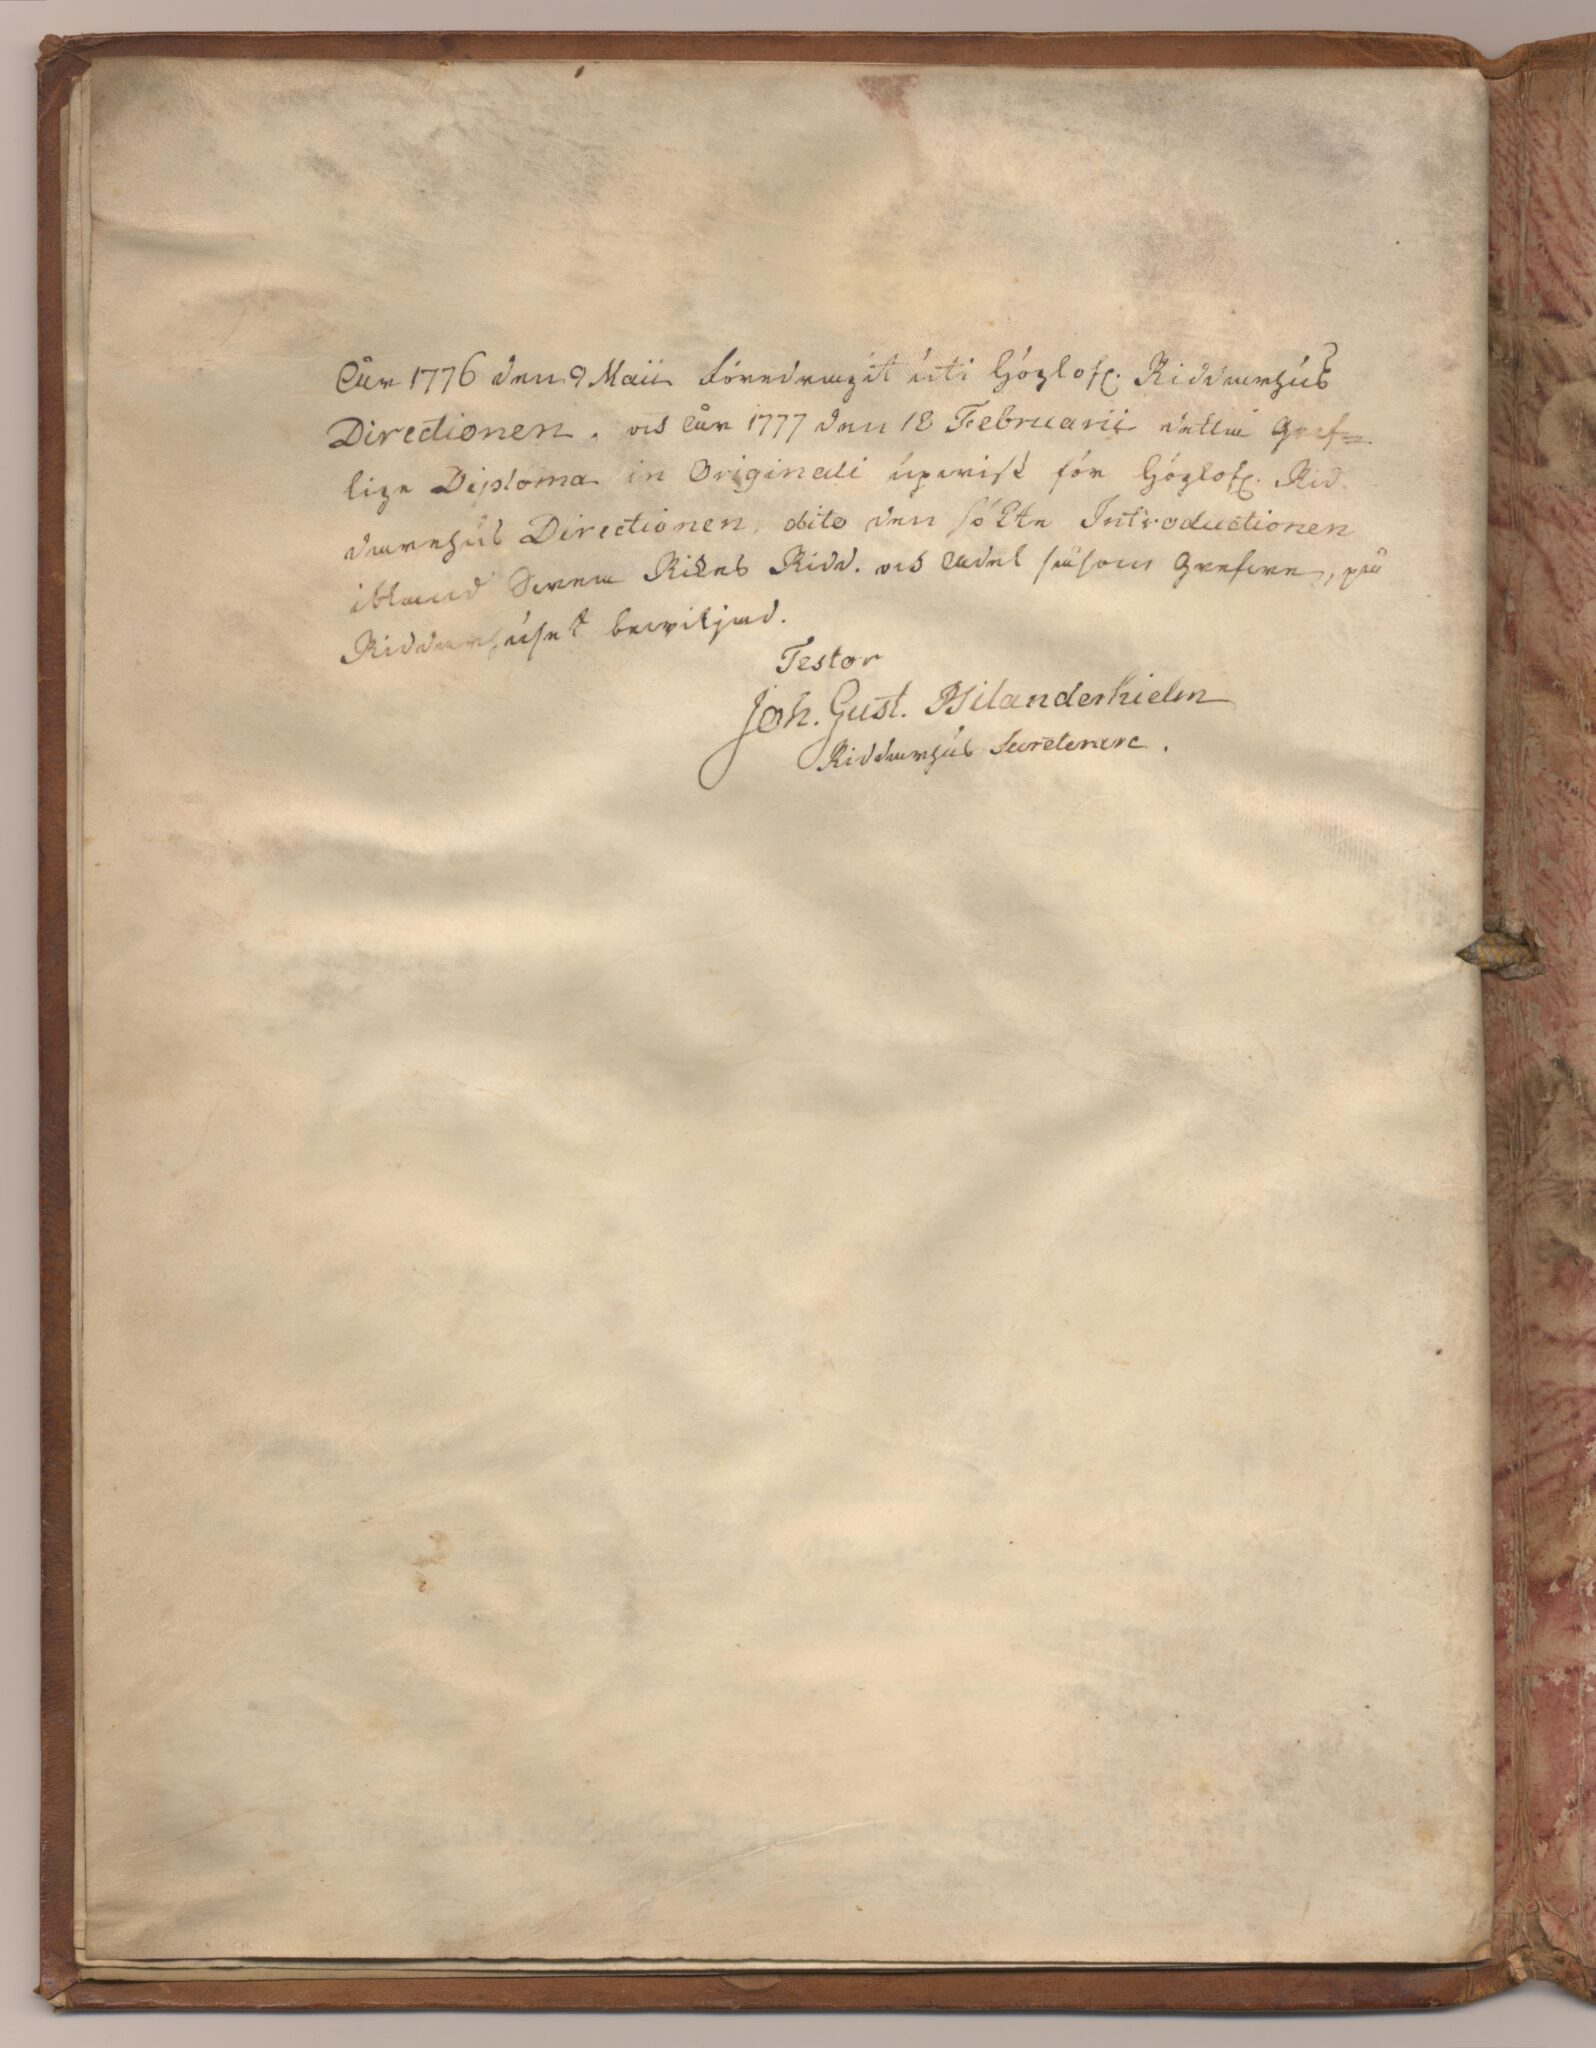 Åhr 1776 den 9 Maii föredragit uti Höglofl. Riddarhus
Directionen, och åhr 1777 den 18 Februarii detta Gref=
lige Diploma in Originali upvist för Höglofl. Rid
darehus Directionen, dito den sökte Introductionen
ibland Svea Rikes Ridd. och Adel såsom Grefwe, på
Riddarhuset bewiljad.
Testor
Joh. Gust. Psilanderhielm
Riddarhus Secreterare.